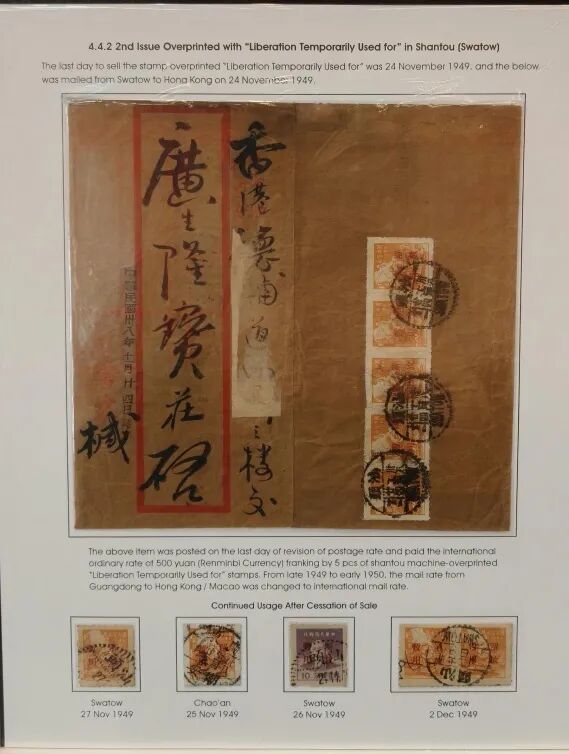 4.4.2 2nd Issue Overprinted with "Liberation Temporarily Used for" in Shantou (Swatow)
The last day to sell the stamp overprinted "Liberation Temporarily Used for" was 24 November 1949, and the below
was mailed from Swatow to Hong Kong on 24 November 1949.
香港德輔道
之樓交
廣生隆寶莊啓
中華民國卅八年十一月廿四日
椷
The above item was posted on the last day of revision of postage rate and paid the international
ordinary rate of 500 yuan (Renminbi Currency) franking by 5 pcs of shantou machine-overprinted
"Liberation Temporarily Used for" stamps. From late 1949 to early 1950, the mail rate from
Guangdong to Hong Kong / Macao was changed to international mail rate.
Continued Usage After Cessation of Sale
Swatow
27 Nov 1949
Chao'an
25 Nov 1949
10
Swatow
26 Nov 1949
Swatow
2 Dec 1949